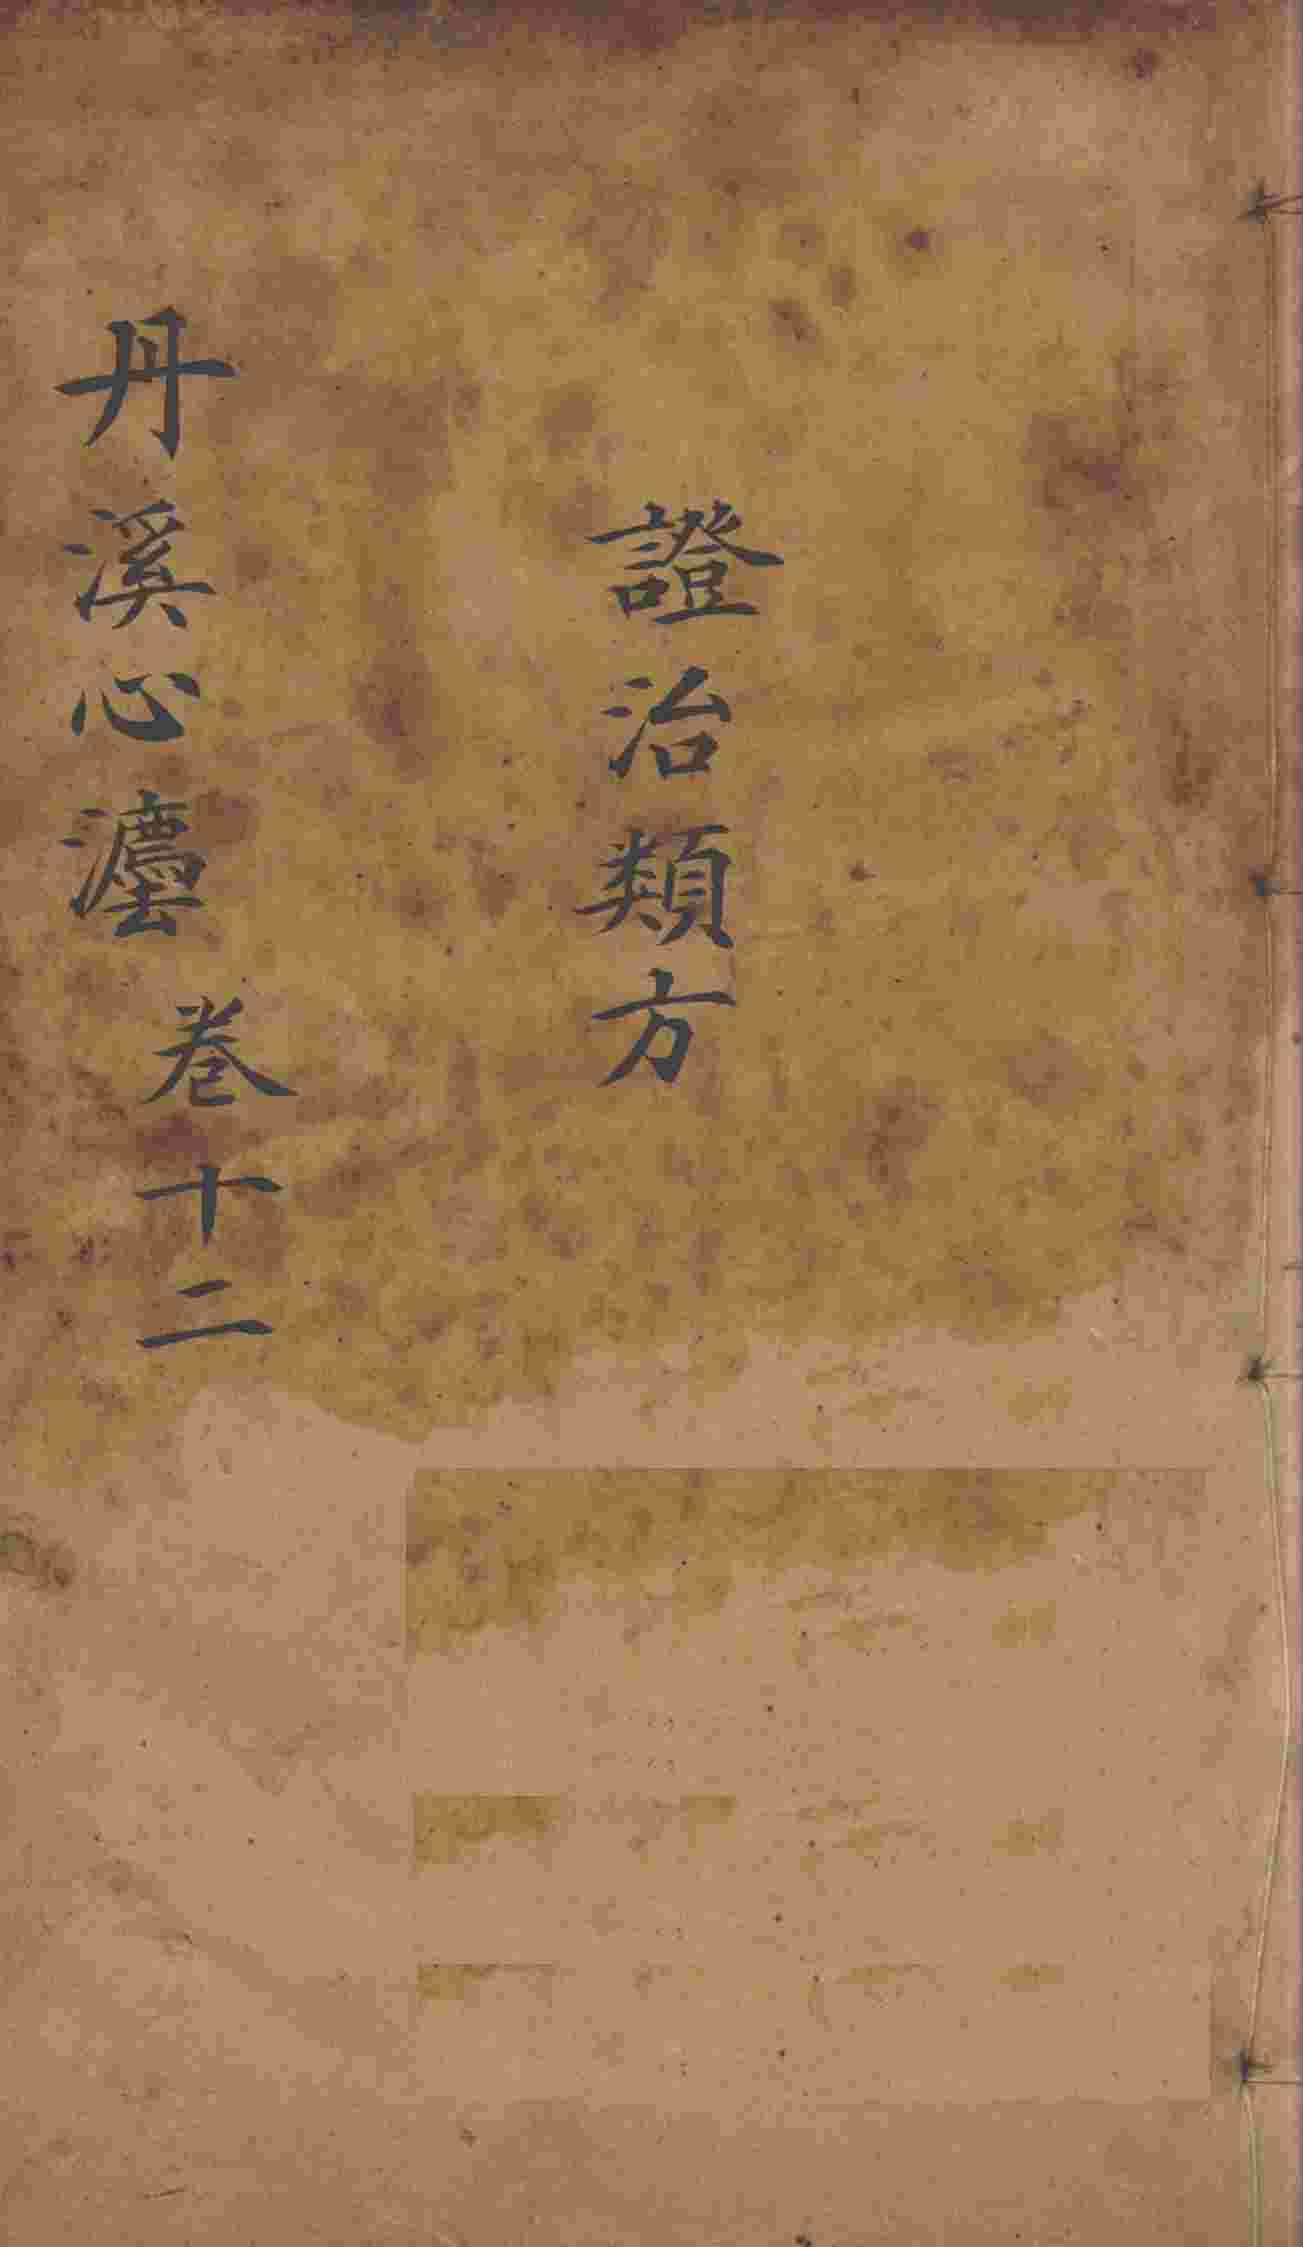 證治類方
丹溪心灋 卷十二